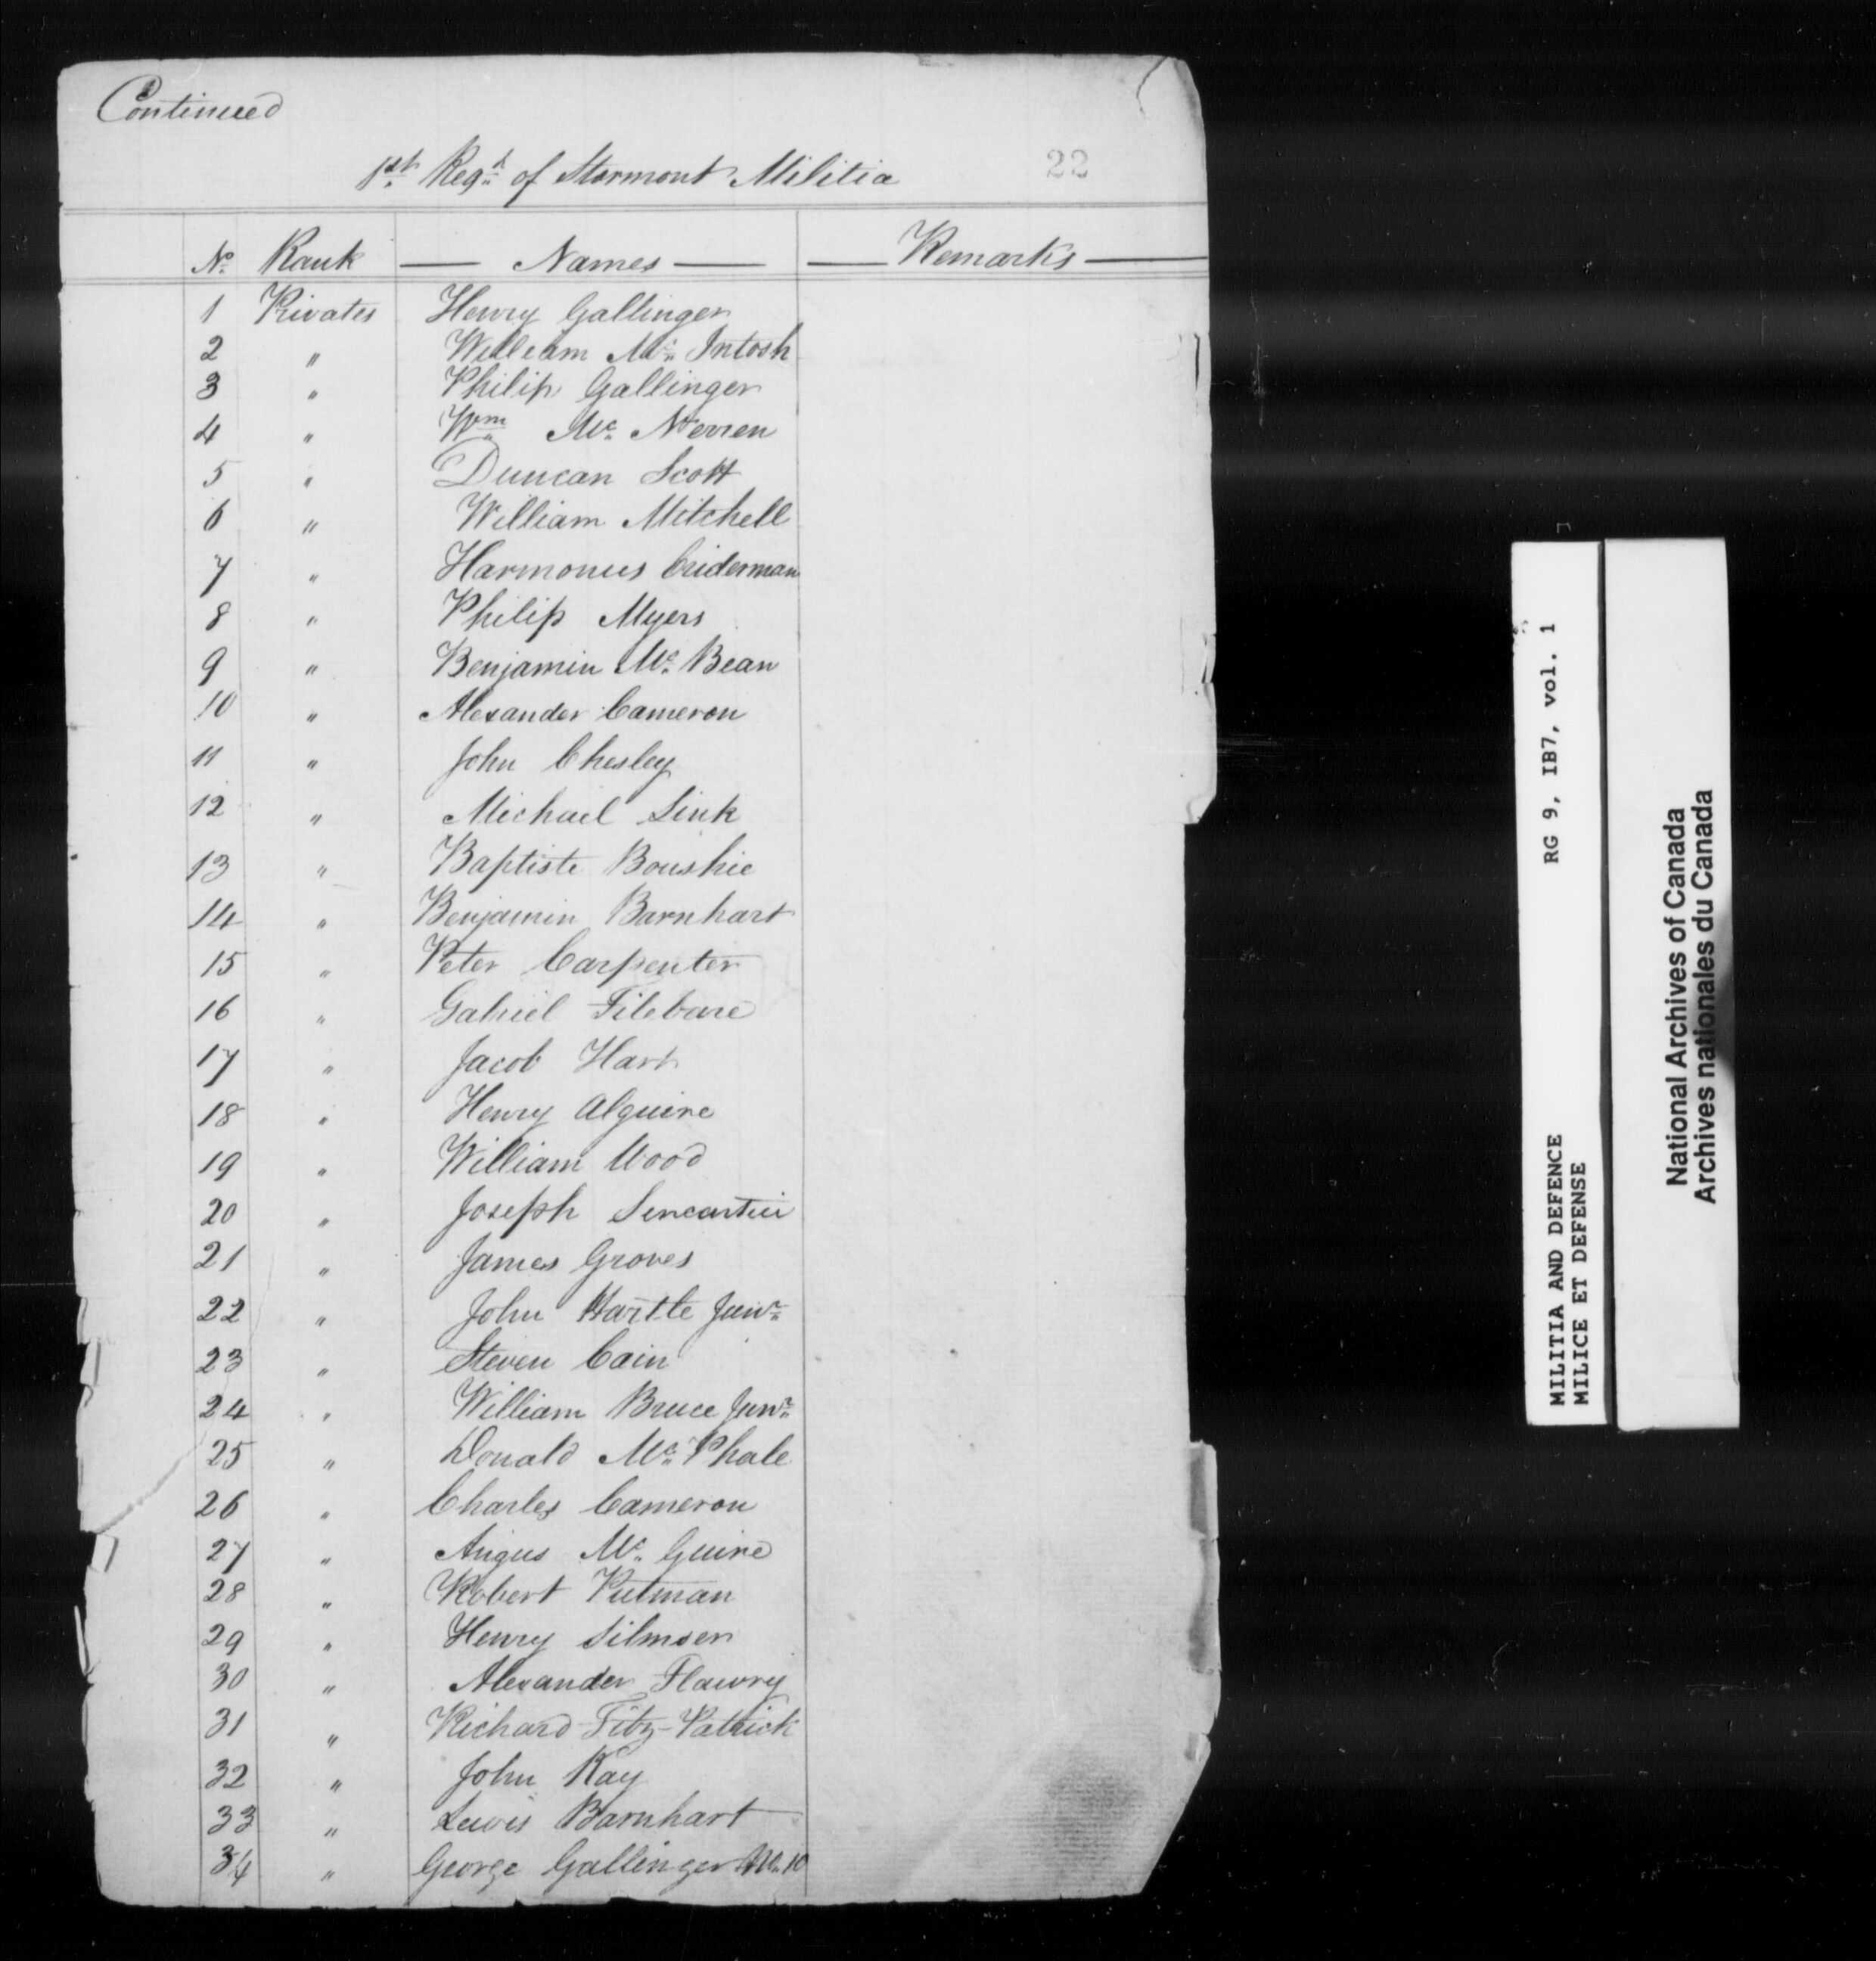 Continued
1st Regt of Stormont Militia 22
No Rank Names Remarks
1 Privates Henry Gallinger
2 " William Mc Intosh
3 " Philip Gallinger
4 " Wm Mc Nerren
5 " Duncan Scott
6 " William Mitchell
7 " Harmonius Criderman
8 " Philip Myers
9 " Benjamin Mc Bean
10 " Alexander Cameron
11 " John Chesley
12 " Michael Link
13 " Baptiste Boushie
14 " Benjamin Barnhart
15 " Peter Carpenter
16 " Gabriel Filebare
17 " Jacob Hart
18 " Henry Alguire
19 " William Wood
20 " Joseph
21 " James Groves
22 " John Hartle Junr
23 " Steven Cain
24 " William Bruce Junr
25 " Donald Mc Phale
26 " Charles Cameron
27 " Angus Mc Guire
28 " Robert Putman
29 " Henry Silmser
30 " Alexander Flawry
31 " Richard Fitz-Patrick
32 " John Kay
33 " Lewis Barnhart
34 " George Gallinger No. 10
MILITIA AND DEFENCE RG 9, IB7, vol. 1
MILICE ET DEFENSE
National Archives of Canada
Archives nationales du Canada